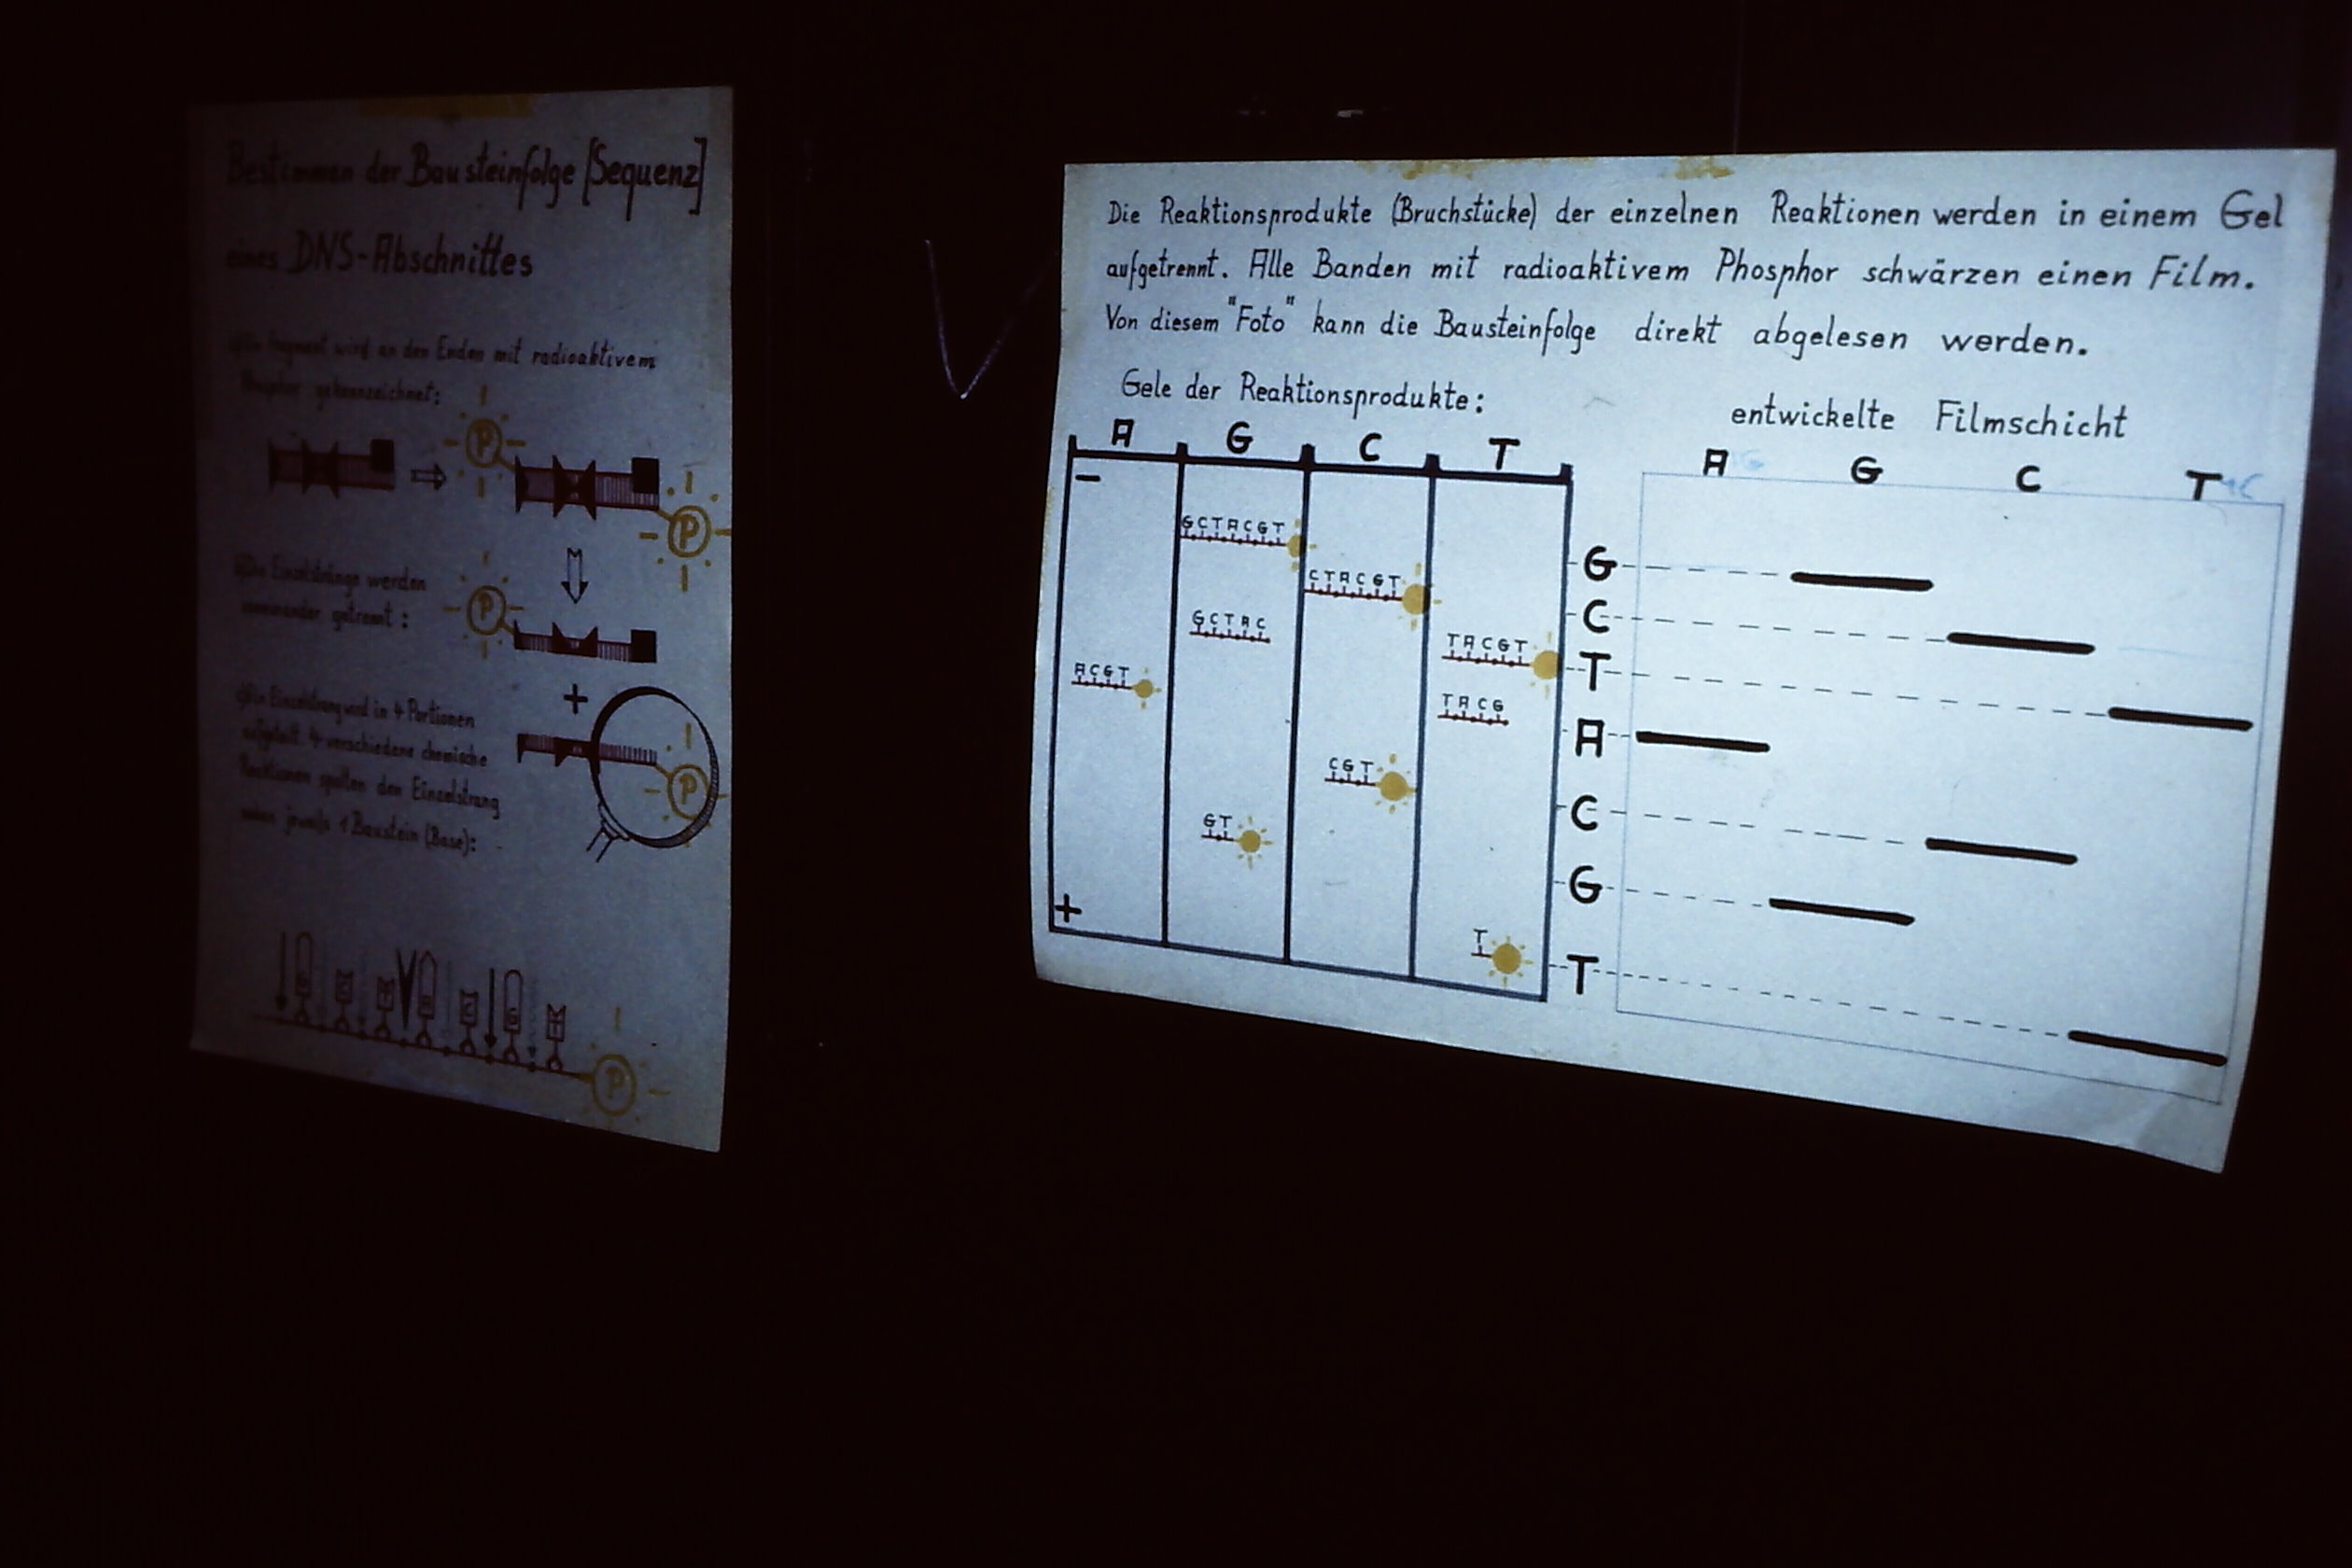 Bestimmen der Bausteinfolge [Sequenz]
eines DNS-Abschnittes
Fragment wird an den Enden mit radioaktivem
Phosphor gekennzeichnet:
P
P
Einzelstränge werden
voneinander getrennt:
P
+
Einzelstrang wird in 4 Portionen
aufgeteilt. 4 verschiedene chemische
Reaktionen spalten den Einzelstrang
neben jeweils 1 Baustein (Base):
P
G C T A C G T
P
Die Reaktionsprodukte (Bruchstücke) der einzelnen Reaktionen werden in einem Gel
aufgetrennt. Alle Banden mit radioaktivem Phosphor schwärzen einen Film.
Von diesem "Foto" kann die Bausteinfolge direkt abgelesen werden.
Gele der Reaktionsprodukte:
A G C T
−
GCTACGT
CTACGT
GCTAC
TACGT
ACGT
TACG
CGT
GT
+
T
entwickelte Filmschicht
A G C T
G
C
T
A
C
G
T